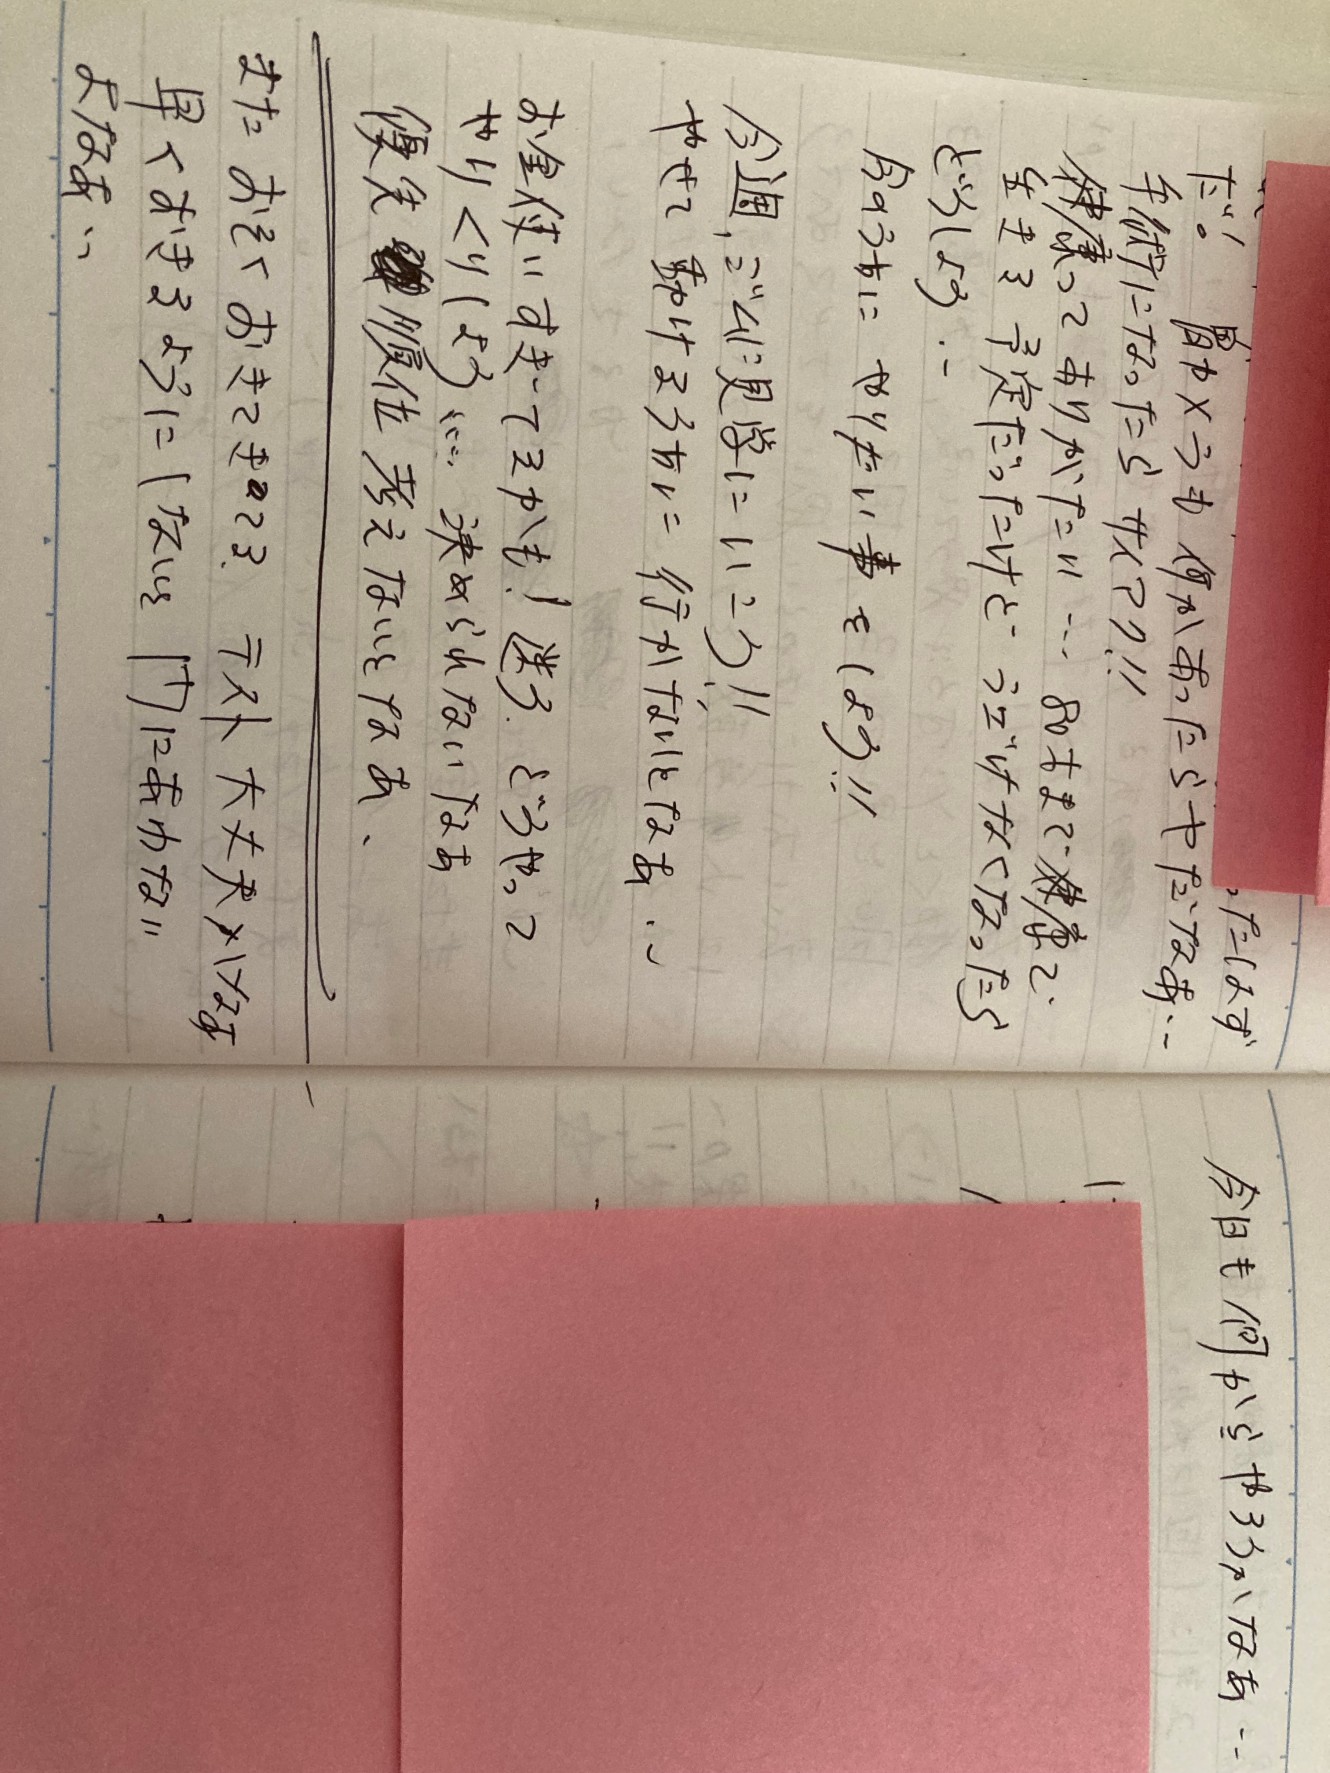 たはず
だ。胃カメラも何かあったらやだなあ…
手術になったらせつ!!
健康ってありがたい… 80才まで健康で
生きる予定だったけどうごけなくなったら
どうしよう…
今のうちにやりたい事をしよう!!
今週、ジムに見学にいこう!!
やせて動けるうちに行かないとなあ…
お金使いすぎてるかも! 迷う。どうやって
やりくりしよう… 決められないなあ
優先順位考えないとなあ、
またおそくおきてきのてる。テスト大丈夫かなあ
早くおきるようにしないと間にあわない
よなあ…
今日も何からやろうかなあ…